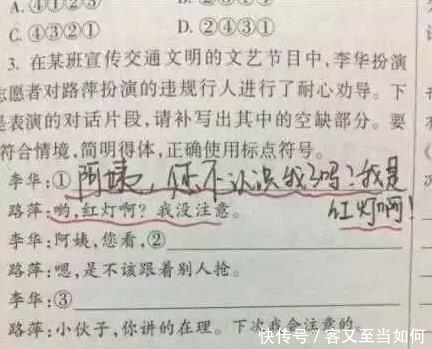 A. ④①②③
D. ②④③①
C. ④③②①
3. 在某班宣传交通文明的文艺节目中,李华扮演
志愿者对路萍扮演的违规行人进行了耐心劝导。下
是表演的对话片段,请补写出其中的空缺部分。要
符合情境,简明得体,正确使用标点符号。
李华:①阿姨,你不认识我了吗?我是
红灯啊!
路萍:哟,红灯啊?我没注意。
李华:阿姨,您看,②
路萍:嗯,是不该跟着别人抢。
李华:③
路萍:小伙子,你讲的在理。下次我会注意的。
快传号/客又至当如何